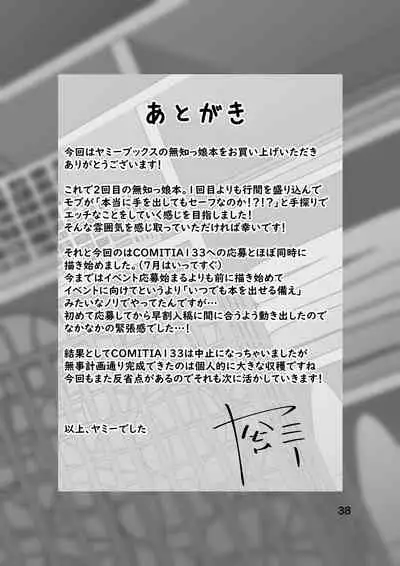 あとがき
今回はヤミーブックスの無知っ娘本をお買い上げいただき
ありがとうございます!
これで2回目の無知っ娘本。1回目よりも行間を盛り込んで
モブが「本当に手を出してもセーフなのか!?!?」と手探りで
エッチなことをしていく感じを目指しました!
そんな雰囲気を感じ取っていただければ幸いです!
それと今回のはCOMITIA133への応募とほぼ同時に
描き始めました。(7月はいってすぐ)
今まではイベント応募始まるよりも前に描き始めて
イベントに向けてというより「いつでも本を出せる備え」
みたいなノリでやってたんですが…
初めて応募してから早割入稿に間に合うよう動き出したので
なかなかの緊張感でした…!
結果としてCOMITIA133は中止になっちゃいましたが
無事計画通り完成できたのは個人的に大きな収穫ですね
今回もまた反省点があるのでそれも次に活かしていきます!
以上、ヤミーでした
38